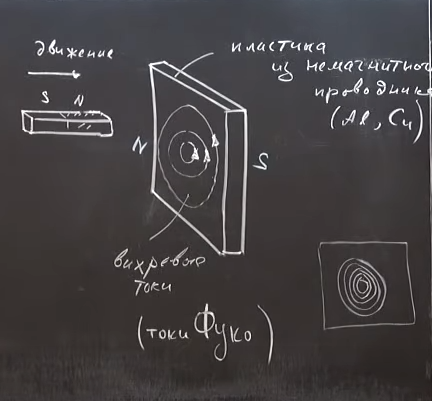 движение
S N
пластина
из немагнитного
проводника
(Al, Cu)
N S
вихревые
токи
(токи Фуко)